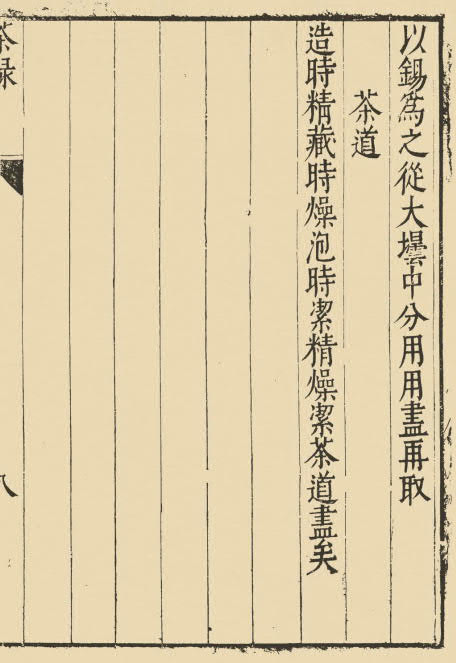 以錫為之從大壜中分用用盡再取
茶道
造時精藏時燥泡時潔精燥潔茶道盡矣
茶録
八